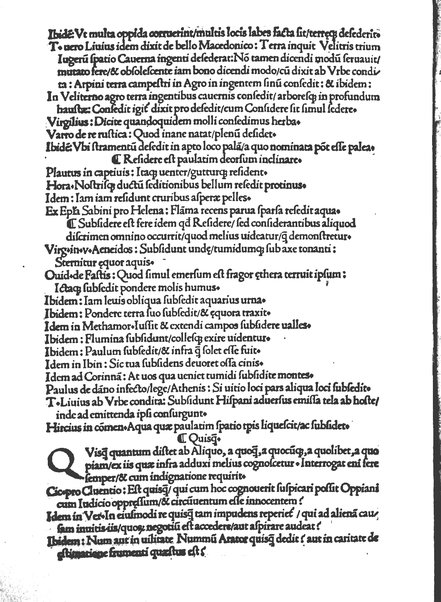 Ibidē: Vt multa oppida corruerint/multis locis labes facta sit/terręq; desederit.
T. uero Liuius idem dixit de bello Macedonico: Terra inquit Velitris trium
Iugerū spatio Cauerna ingenti desederat: Nō tamen dicendi modū seruauit/
mutato fere/& obsolescente iam bono dicendi modo/cū dixit ab Vrbe condi
ta: Arpini terra campestri in Agro in ingentem sinū consedit: & ibidem:
In Veliterno agro terra ingentibus cauernis consedit/arboresq; in profundum
haustæ: Consedit igiť dixit pro desedit/cum Considere sit simul sedere.
Virgilius: Dicite quandoquidem molli consedimus herba.
Varro de re rustica: Quod inane natat/plenū desidet.
Ibidē: Vbi stramentū desidet in apto loco palā/a quo nominata pōt esse palea
¶ Residere est paulatim deorsum inclinare.
Plautus in captiuis: Itaq; uenter/gutturq; resident.
Hora. Nostrisq; ductū seditionibus bellum resedit protinus.
Idem: Iam iam residunt cruribus asperæ pelles.
Ex Epła Sabini pro Helena: Flāma recens parua sparsa resedit aqua.
¶ Subsidere est fere idem qđ Residere/sed considerantibus aliquod
discrimen omnino occurrit/quod melius uideatur/q̄ demonstretur.
Virg. in. v. Aeneidos: Subsidunt undę/tumidumq; sub axe tonanti:
Sternitur equor aquis.
Ouid. de Fastis: Quod simul emersum est fragor ęthera terruit ipsum:
Ictaq; subsedit pondere molis humus.
Ibidem: Iam leuis obliqua subsedit aquarius urna.
Ibidem: Pondere terra suo subsedit/& ęquora traxit.
Idem in Methamor. Iussit & extendi campos subsidere ualles.
Ibidem: Flumina subsidunt/collesq; exire uidentur.
Ibidem: Paulum subsedit/& infra q̄ solet esse fuit.
Idem in Ibin: Sic tua subsidens deuoret ossa cinis.
Idem ad Corinnā: At uos qua ueniet tumidi subsidite montes.
Paulus de dāno infecto/lege/Athenis: Si uitio loci pars aliqua loci subsedit.
T. Liuius ab Vrbe condita: Subsidunt Hispani aduersus emissa tela ab hoste/
inde ad emittenda ipsi consurgunt.
Hircius in cōmen. Aqua quæ paulatim spatio tpis liquescit/ac subsidet.
¶ Quisq̄.
QVisq̄ quantum distet ab Aliquo, a quoq̄, a quocūq;, a quolibet, a quo
piam/ex iis quæ infra adduxi melius cognoscetur. Interrogat eni fere
semper/& cum indignatione requirit.
Cic. pro Cluentio: Est quisq̄/qui cum hoc cognouerit suspicari possit Oppiani
cum Iudicio oppressum/& circūuentum esse innocentem?
Idem in Ver. In eiusmodi re quisq̄ tam impudens reperieť/qui ad alienā cau/
sam inuitis iis/quoꝝ negotiū est accedere/aut aspirare audeat?
Ibidem: Num aut in uilitate Nummū Arator quisq̄ dedit? aut in caritate de
estimatione frumenti questus est?